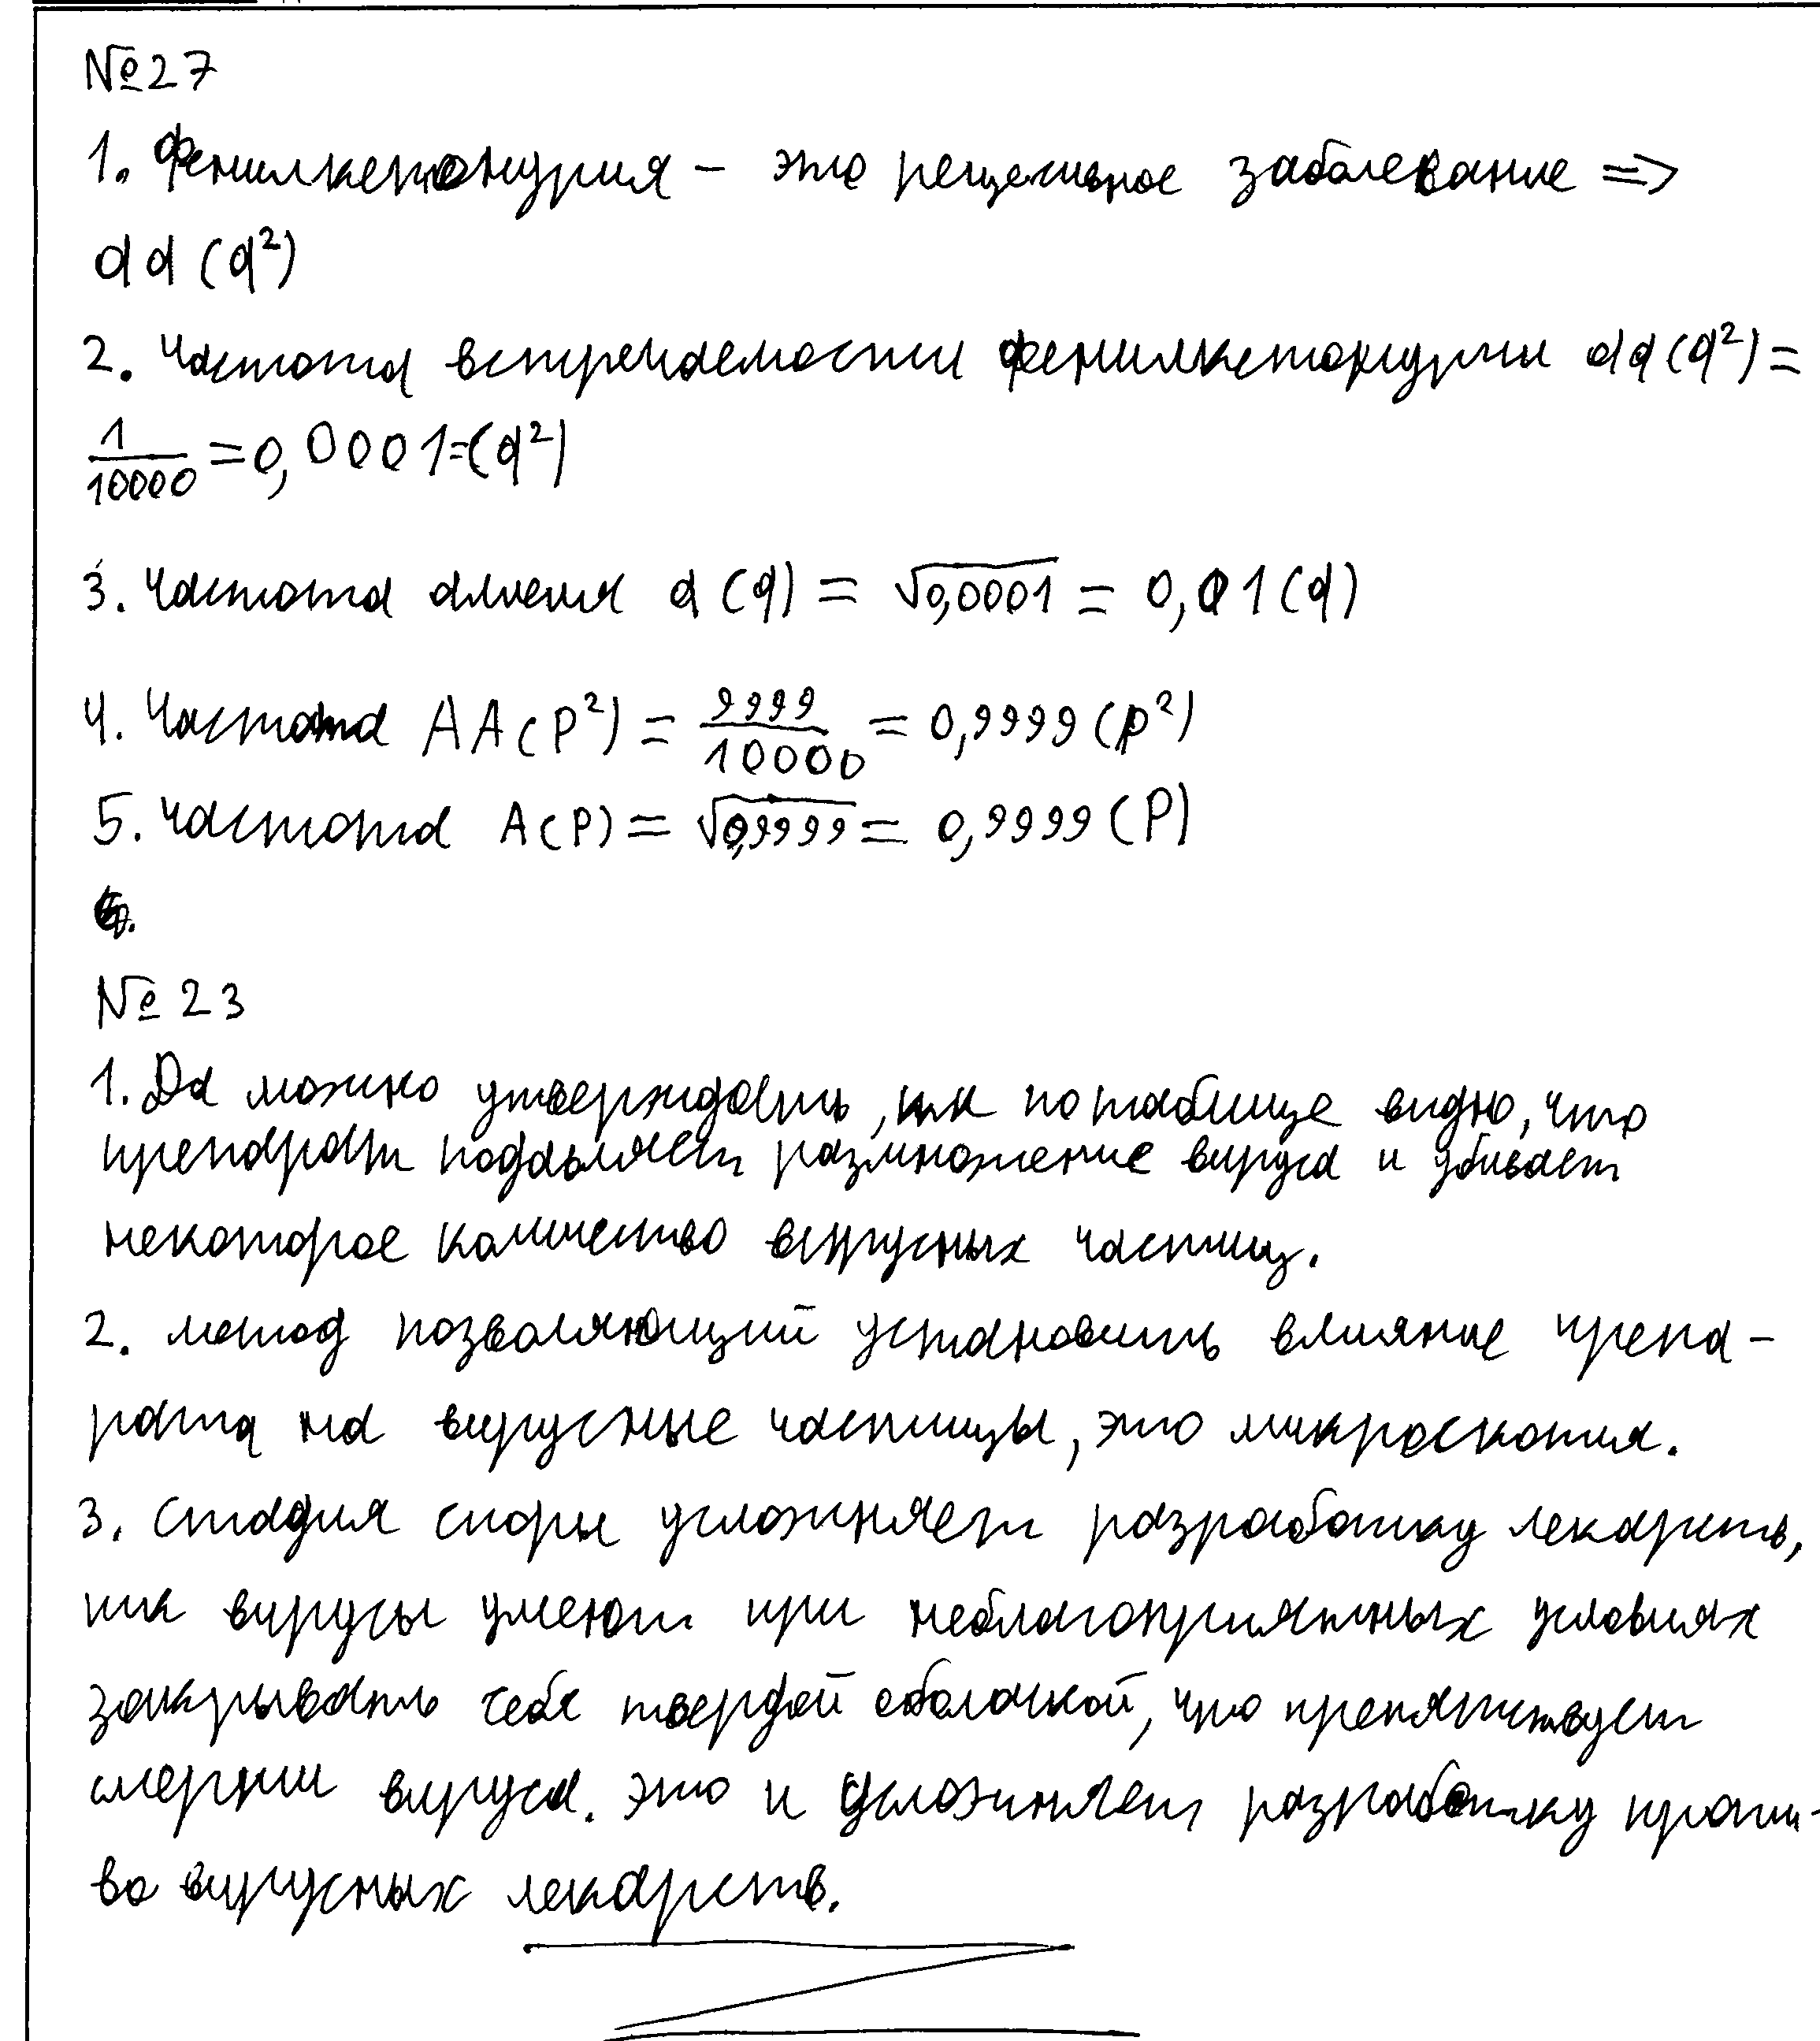 №27
1. Фенилкетонурия – это рецесивное заболевание =>
аа (q²)
2. Частота встречаемости фенилкетонурии аа (q²) =
1/10000 = 0,0001 = (q²)
3. Частота аллеля а (q) = √0,0001 = 0,01 (q)
4. Частота АА (P²) = 9999/10000 = 0,9999 (p²)
5. Частота А (P) = √0,9999 = 0,9999 (P)
6.
№ 23
1. Да можно утверждать, тк по таблице видно, что
препарат подавляет размножение вируса и убивает
некоторое количество вирусных частиц.
2. метод позволяющий установить влияние препа-
рата на вирусные частицы, это микроскопия.
3. Стадия споры усложняет разработку лекарств,
тк вирусы умеют при неблагоприятных условиях
закрывать себя твердой оболочкой, что препятствует
смерти вируса. это и усложняет разработку проти-
во вирусных лекарств.